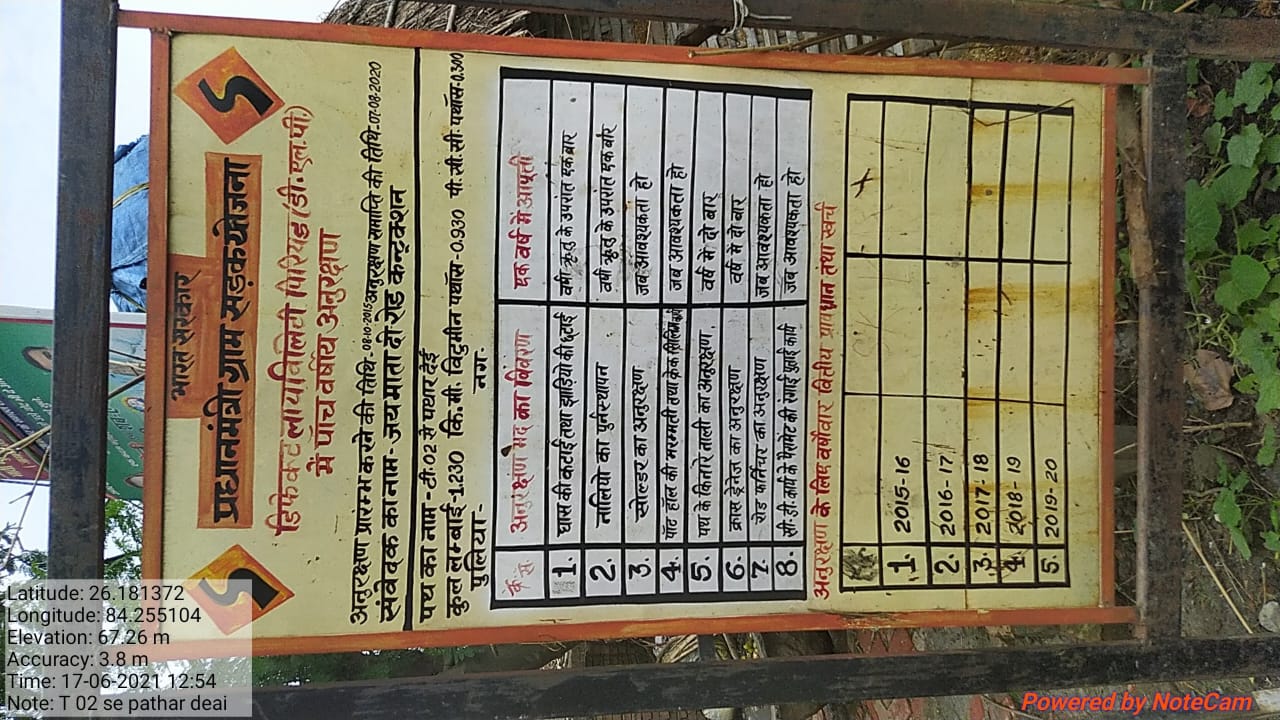 भारत सरकार
प्रधानमंत्री ग्राम सड़क योजना
डिफेक्ट लायाबिलिटी पिरियड (डी.एल.पी)
में पाँच वर्षीय अनुरक्षण
अनुरक्षण प्रारम्भ करने की तिथि-08-10-2015 अनुरक्षण समाप्ति की तिथि-07-08-2020
संवेदक का नाम- जय माता दी रोड कन्ट्रक्शन
पथ का नाम-टी.02 से पथार देई
कुल लम्बाई-1.230 कि.मी. विटुमीन पथॉस-0.930 पी.सी.सी. पथॉस-0.300
पुलिया- नग-
क्र.स. अनुरक्षण मद का विवरण एक वर्ष में आवृती
1. घास की कटाई तथा झाड़ियो की छटाई वर्षा ऋतु के उपरांत एक बार
2. नालियो का पुर्नस्थापन वर्षा ऋतु के उपरांत एक बार
3. सोल्डर का अनुरक्षण जब आवश्यकता हो
4. पॉट हॉल की मरम्मती तथा क्रेक फिलिंग कार्य जब आवश्यकता हो
5. पथ के किनारे नाली का अनुरक्षण वर्ष में दो बार
6. क्रास ड्रेनेज का अनुरक्षण वर्ष में दो बार
7. रोड फर्निचर का अनुरक्षण जब आवश्यकता हो
8. सी.डी.कार्य के पैरामेट की रंगाई पुताई कार्य जब आवश्यकता हो
अनुरक्षण के लिए वर्षावार वित्तीय प्रावधान तथा खर्च
1. 2015-16
2. 2016-17
3. 2017-18
4. 2018-19
5. 2019-20
Latitude: 26.181372
Longitude: 84.255104
Elevation: 67.26 m
Accuracy: 3.8 m
Time: 17-06-2021 12:54
Note: T 02 se pathar deai
Powered by NoteCam